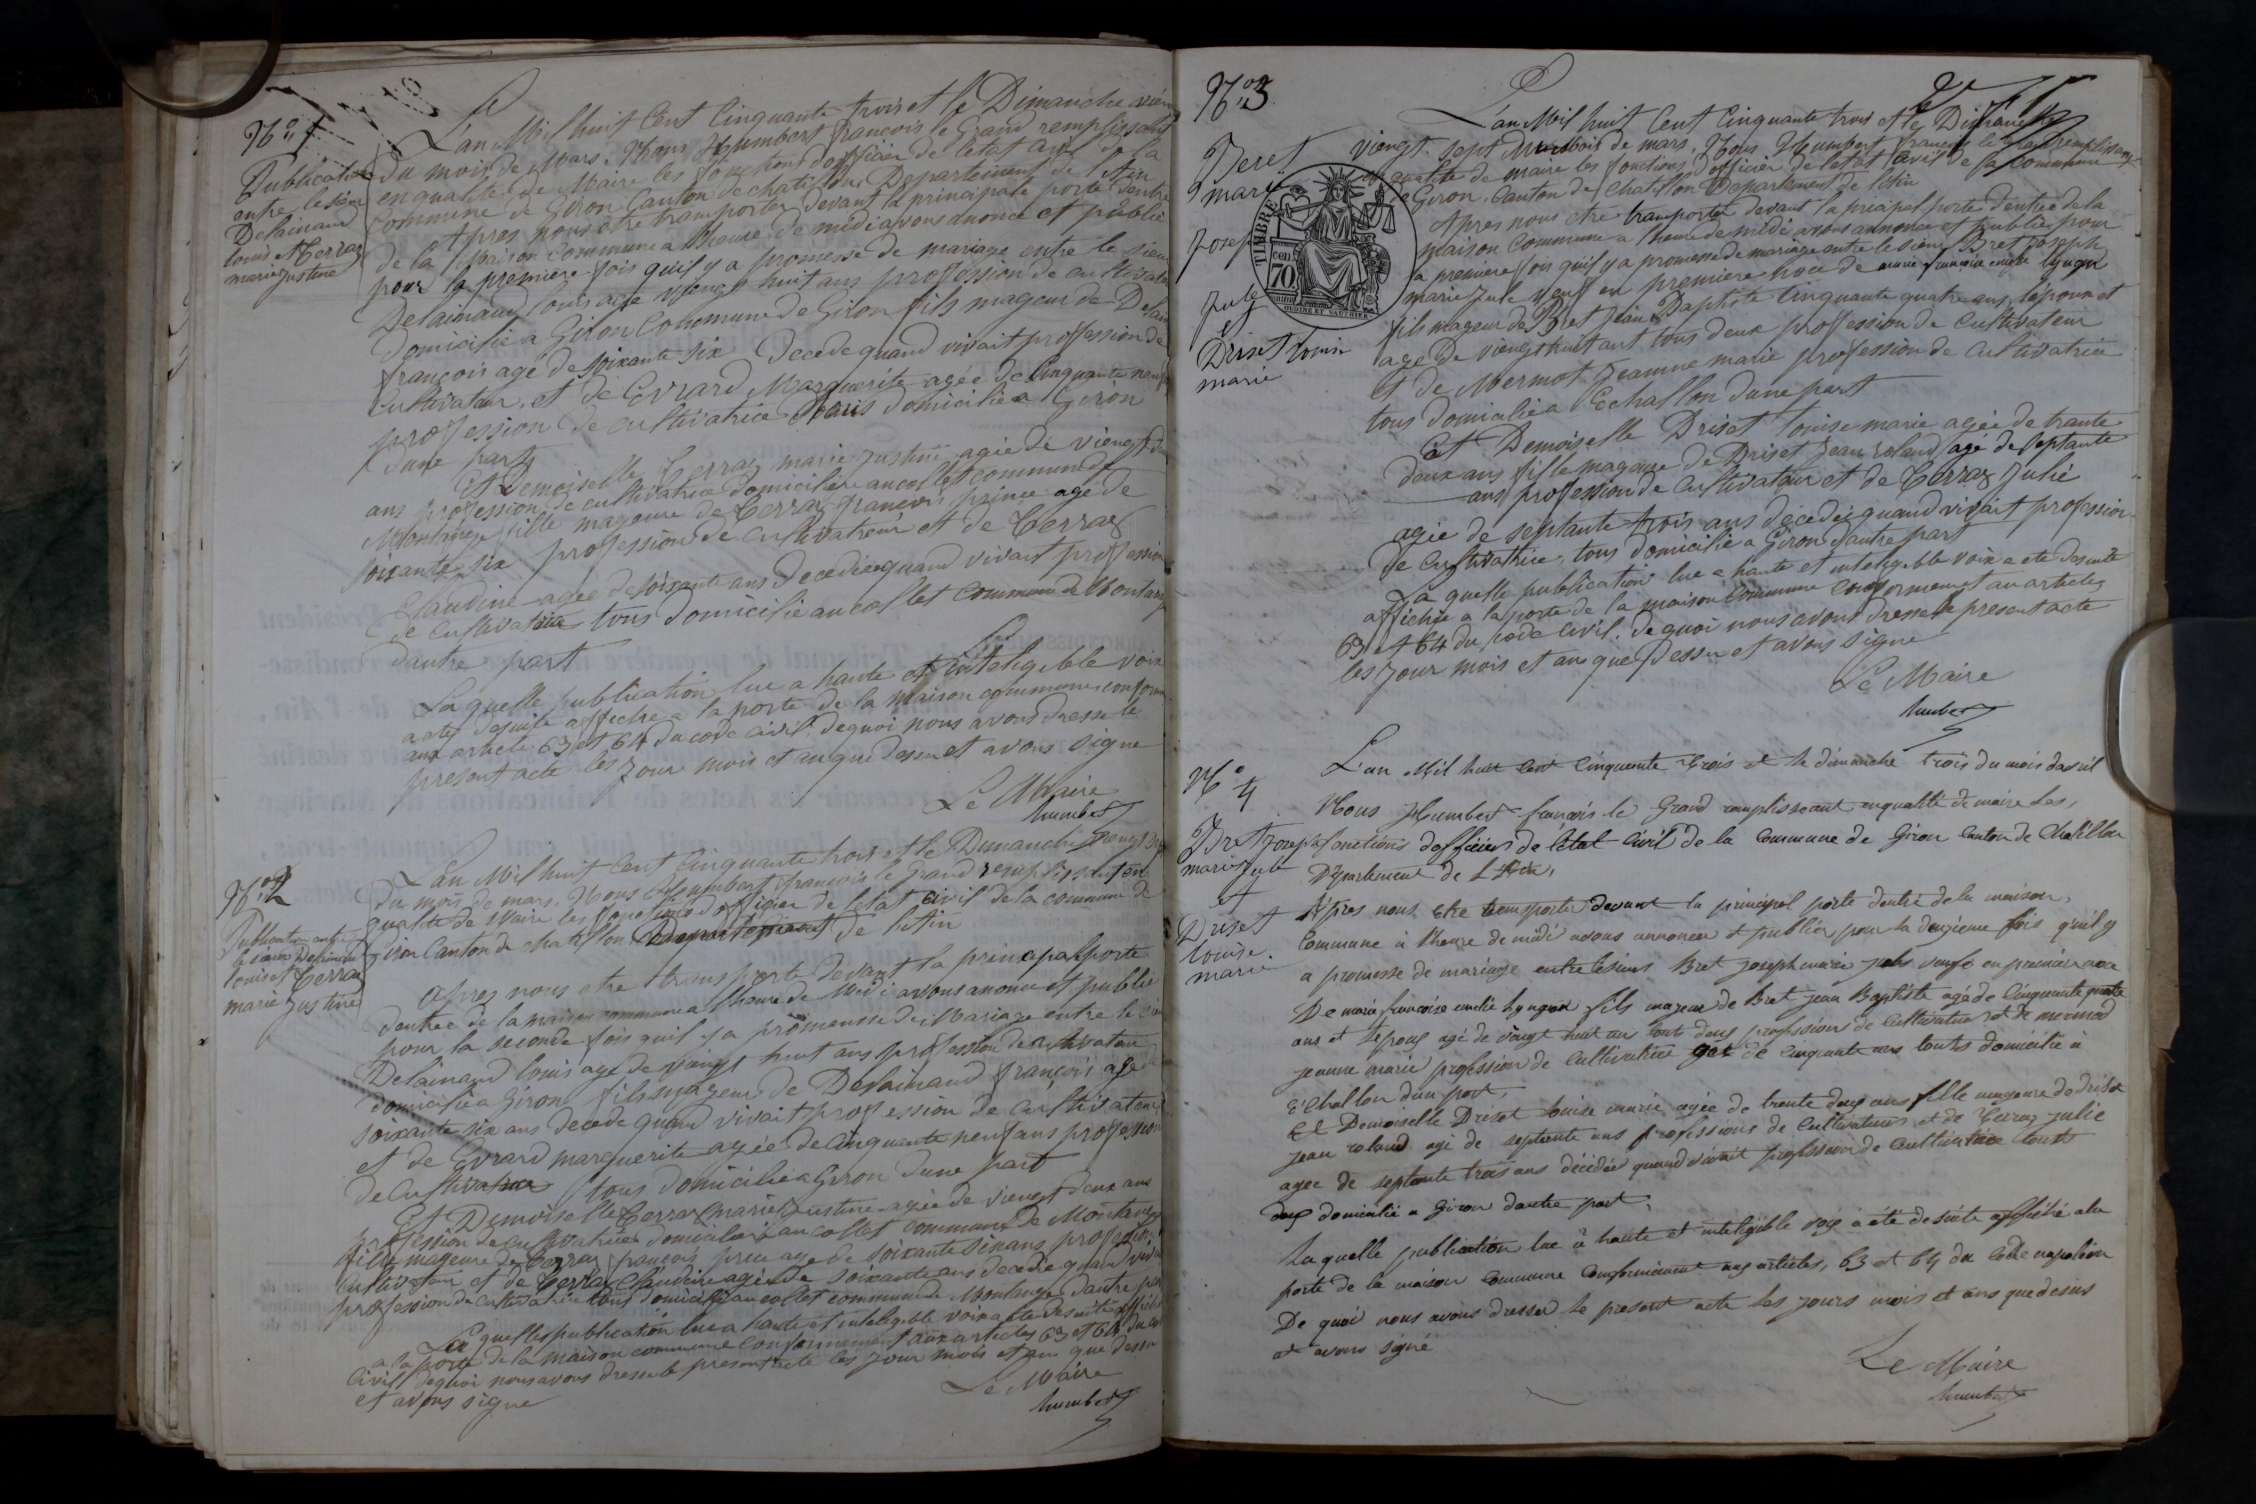 No 1
Publication
entre le sieur
Delainaud
louis et Cerraz
marie justine
L'an Mil huit Cent Cinquante trois et le Dimanche
du mois de Mars. Nous Humbert françois le Grand remplissant
en qualité de Maire les fonctions d'officier de l'état civil de la
Commune de Giron Canton de chatillon Departement de l'Ain
Apres nous etre transporter devant la principale porte dentre
de la Maison Commune a lheure de midi avons anoncé et publié
pour la premiere fois quil y a promesse de mariage entre le sieur
Delainaud louis agé viengt huit ans profession de cultivateur
domicilié a Giron Commune de Giron fils mageur de
françois agé de soixante six Decede quand vivait profession de
Cultivateur, et de Evrard Marguerite agée de Cinquante neuf
profession de cultivatrice domicilié a Giron
dune part
Et Demoiselle Cerraz marie justine agée de viengt
ans profession de cultivatrice domiciliée au collet commune de
Montange fille mageure de Cerraz françois prince agé de
soixante six profession de cultivateur et de Cerraz
Claudine agée de soixante ans Decedée quand vivait profession
de Cultivatrice tous domicilié au collet Commune de Montange
dautre part
La quelle publication lue a haute et inteligible voix
a eté desuite affiche a la porte de la maison commune
aux article 63 et 64 du code civil. de quoi nous avons dressé le
present acte les jour mois et an que dessu et avons signe
Le Maire
humbert
No 2
Publication entre
le sieur Delainaud
louis et Cerraz
marie justine
L'an Mil huit Cent Cinquante trois et le Dimanche viengt
du mois de mars. Nous Humbert françois le Grand remplissant en
qualité de Maire les fonctions d'officier de l'état civil de la commune de
Giron Canton de chatillon Departement de l'Ain
Apres nous etre transporté devant la principal porte
dentrée de la maison commune a lheure de Midi avons anoncé et publié
pour la seconde fois quil y a promeusse de Mariage entre le
Delainaud louis agé de viengt huit ans profession de cultivateur
domicilié a Giron fils mageur de Delainaud françois agé de
soixante six ans decede quand vivait profession de cultivateur
et de Evrard marguerite agée de Cinquante neuf ans profession
de Cultivatrice tous domicilié a Giron dune part
Et Demoiselle Cerraz marie justine agée de viengt deux ans
profession de cultivatrice domiciliée au collet commune de Montange
fille mageure de Cerraz françois agé de soixante six ans profession
cultivateur et de Cerraz Claudine agée de soixante ans decedée quand
profession de cultivatrice tous domicilié au collet commune de Montange dautre part
La quelle publication lue a haute et inteligible voix a eté desuite
a la porte de la maison commune conformement aux articles 63 et 64 du code
Civil de quoi nous avons dressé le present acte les jour mois et an que dessu
et avons signe
Le Maire
humbert
No 3
Beret
marie
Joseph
jule
et
Driset louise
marie
TIMBRE
70
L'an Mil huit Cent Cinquante trois et le Dimanche
viengt sept du mois de mars, Nous Humbert françois le Grand remplissant
en qualité de maire les fonctions d'officier de l'état civil de la Commune
de Giron, Canton de Chatillon Departement de l'Ain
Apres nous etre transporté devant la principal porte d'entrée de la
maison Commune a lheure de midi avons annoncé et publié pour
la premiere fois quil y a promesse de mariage entre le sieur Bret joseph
marie jule veuf en premiere noce de marie françoise
fils mageur de Bret jean Baptiste Cinquante quatre ans, lépoux et
agé de viengt huit ans tous deux profession de Cultivateur
et de Mermot Jeanne marie profession de Cultivatrice
tous domicilié a Echallon dune part
Et Demoiselle Driset louise marie agée de trante
deux ans fille mageure de Driset Jean roland agé de septante
ans profession de Cultivateur et de Cerraz Julie
agée de septante trois ans décedée quand vivait profession
de Cultivatrice, tous domicilié a Giron dautre part
La quelle publication lue a haute et inteligible voix a eté desuite
affichée a la porte de la maison Commune Conformement au articles
63 et 64 du code civil. de quoi nous avons dressé le present acte
les jour mois et ans que dessu et avons signe
Le Maire
humbert
No 4
Bret joseph
marie jule
et
Driset
louise
marie
L'an Mil huit cent Cinquante trois et le dimanche trois du mois davril
Nous Humbert françois le Grand remplissant en qualité de maire les
fonctions dofficiers de l'état Civil de la Commune de Giron Canton de Chatillon
Département de L'Ain,
Apres nous etre transporté devant la principal porte dentré de la maison,
Commune à l'heure de midi avons annoncer et publier pour la deuzieme fois quil y
a promesse de mariage entre le sieur Bret joseph marie jules veuf en premiere noce
De marie françoise fils mageur de Bret jean Baptiste agé de Cinquante quatre
ans et lépoux agé de vingt huit ans tout deux profession de Cultivateur et de mermod
jeanne marie profession de Cultivatrice agé de Cinquante ans touts domicilié à
Echallon dune part,
Et Demoiselle Driset louise marie agée de trente deux ans fille mageure de driset
jean roland agé de septante ans profession de Cultivateur et de Cerraz julie
agée de septante trois ans décédée quand vivait profession de Cultivatrice touts
deux domicilié a Giron dautre part,
La quelle publication lue à haute et inteligible voix à été de suite affiché ala
porte de la maison Commune Conformément aux articles, 63 et 64 du Code napoléon
De quoi nous avons dresser le present acte les jours mois et ans que desus
et avons signé
Le Maire
humbert